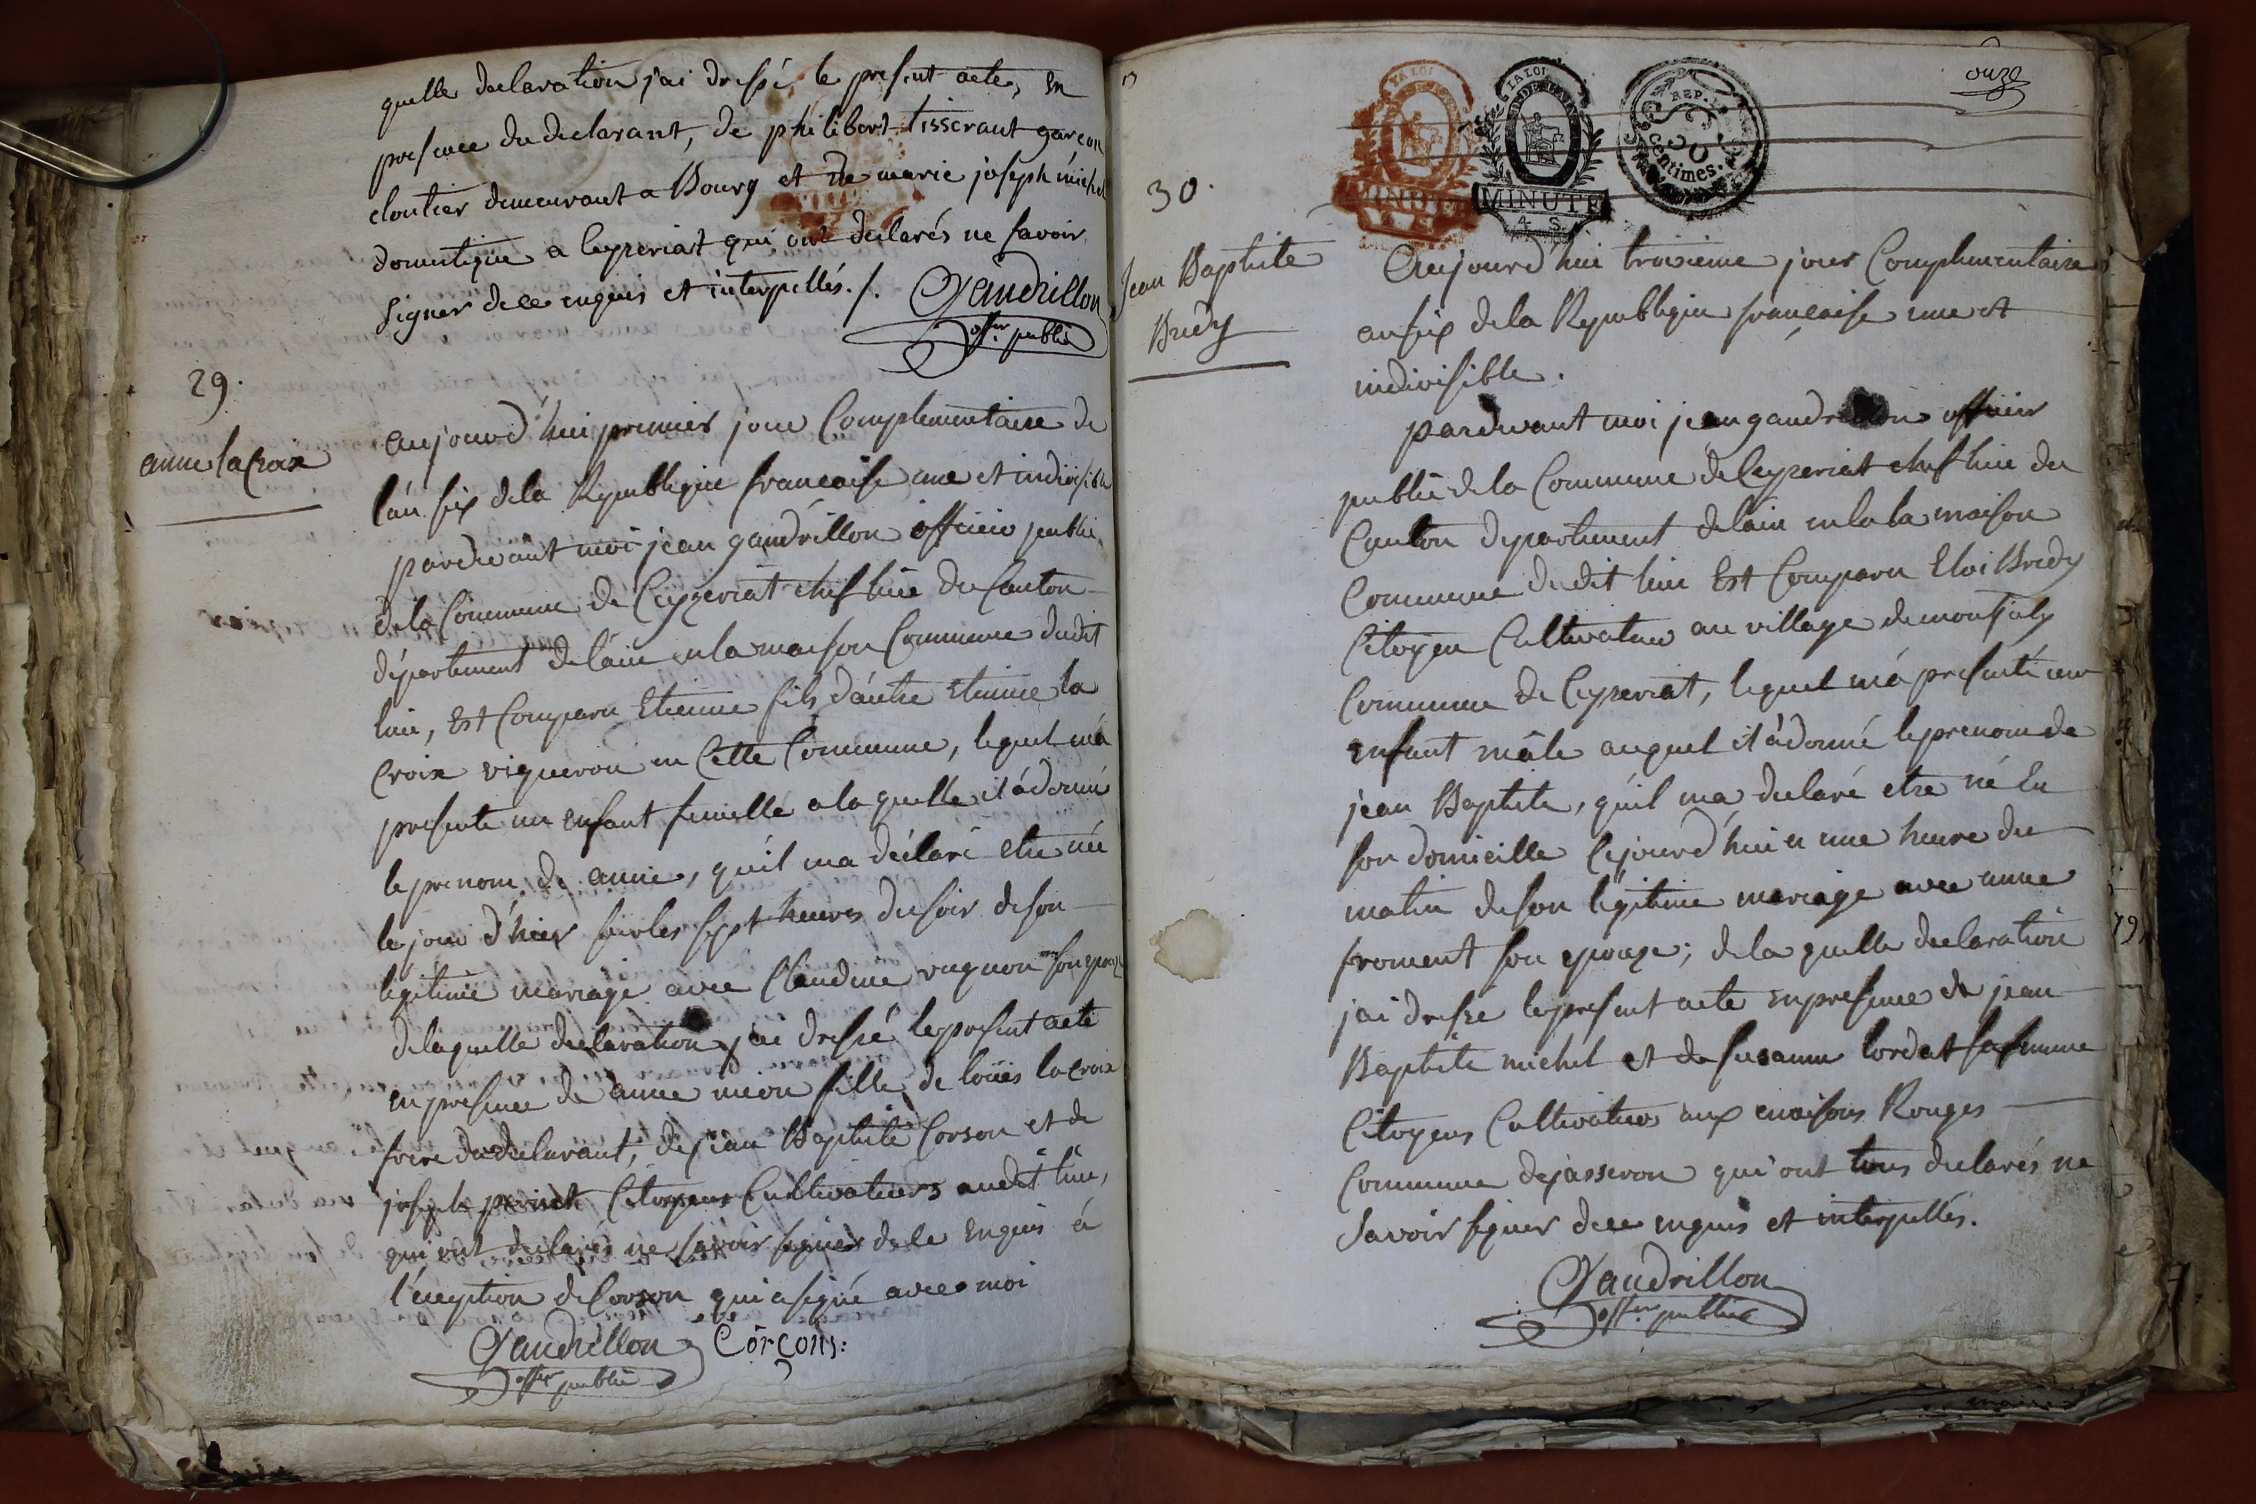 quelle declaration j'ai dressé le present acte, en
presence du declarant, de philibert tisserant garçon
cloutier demeurant a Bourg et de marie joseph michel
domestique a Ceyzeriat qui ont declarés ne savoir
signer de ce enquis et interpellés ./. Gaudrillon
offier. public
29.
anne la Croix
aujourd'hui premier jour Complementaire de
l'an six de la Republique francaise une et indivisible
pardevant moi jean gaudrillon officier public
de la Commune de Ceyzeriat chef lieu du Canton
département de l'ain en la maison Commune dudit
lieu, Est Comparu Etienne fils d'autre Etienne la
Croix vigneron en Cette Commune, lequel m'a
presenté un enfant femelle a la quelle il a donné
le prenom de anne, qu'il ma déclaré etre née
le jour d'hier sur les sept heures du soir de son
legitime mariage avec Claudine vugnon son epouze
de laquelle declaration j'ai dressé le present acte
en presence de anne mion fille de loüis la Croix
frere du declarant, de jean Baptiste Corson et de
joseph perret Citoyens Cultivateurs audit lieu,
qui ont declarés ne savoir signer de ce Enquis à
l'éxeption de Corson qui a signé avec moi
Gaudrillon Corçons:
offier public
onze
LA LOI
MINUTE
4 S
LA LOI
MINUTE
4 S
REP.
50
centimes.
30.
Jean Baptiste
Bredy
Aujourd'hui troisieme jour Complimentaire
an six de la Republique française une et
indivisible.
pardevant moi jean gaudrillon officier
public de la Commune de Ceyzeriat chef lieu du
Canton departement de lain en la la maison
Commune dudit lieu Est Comparu Eloi Bredy
Citoyen Cultivateur au village de montjuly
Commune de Ceyzeriat, lequel m'a presenté un
enfant mâle auquel il a donné le prenom de
jean Baptiste, qu'il ma declaré etre né En
son domicille Cejourd'hui a une heure du
matin de son legitime mariage avec anne
froment son epouze; de la quelle declaration
j'ai dressé le present acte en presence de jean
Baptiste michel et de susanne lordat sa femme
Citoyens Cultivateurs aux maisons Rouges
Commune de jasseron qui ont tous declarés ne
Savoir signer de ce enquis et interpellés.
Gaudrillon
offier. public